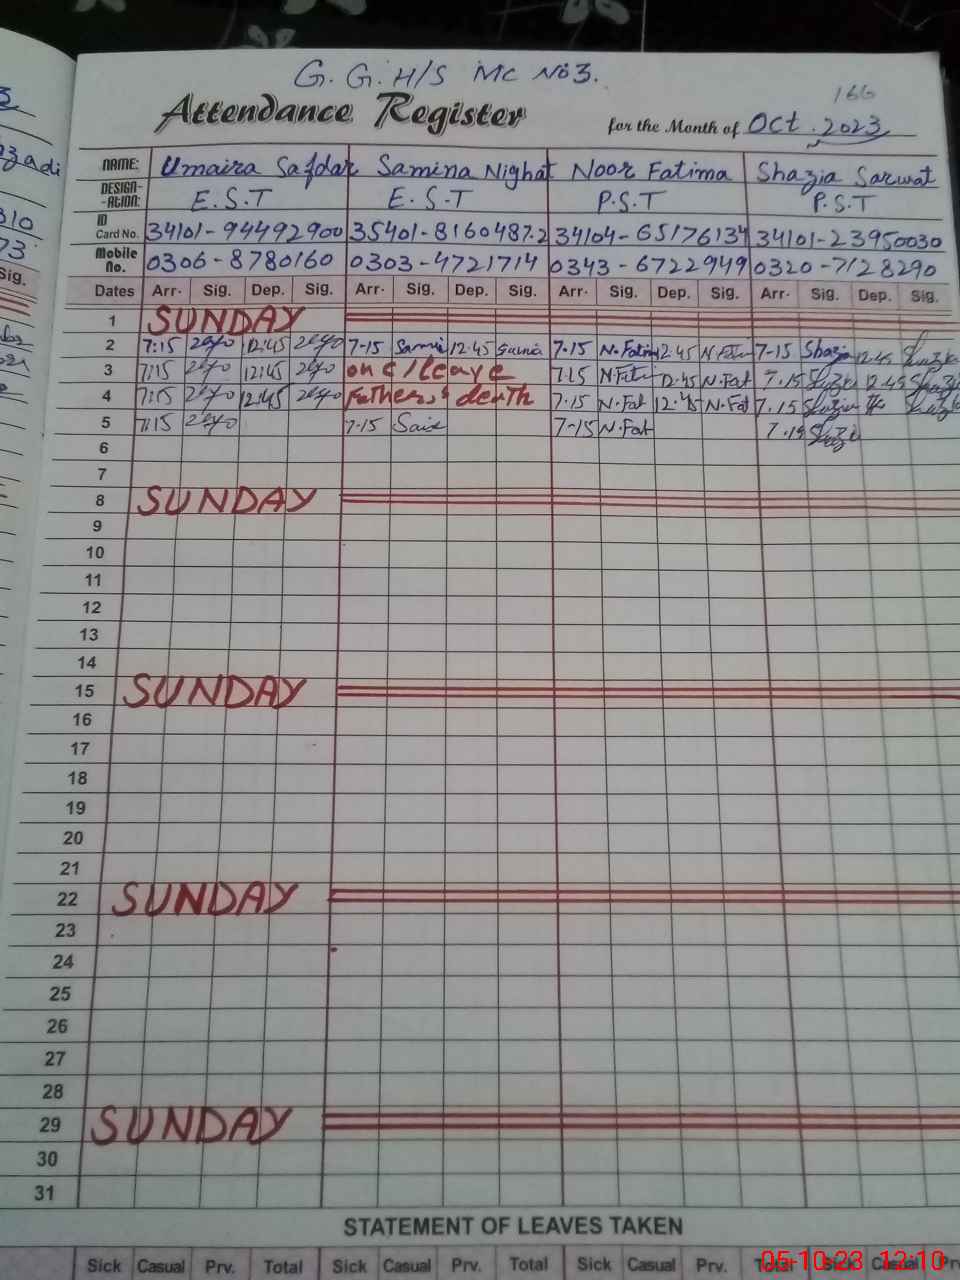 G. G. H/S MC No 3.
166
Attendance Register for the Month of Oct. 2023
NAME: Umaira Safdar Samina Nighat Noor Fatima Shazia Sarwat
DESIGN-ATION: E.S.T E.S.T P.S.T P.S.T
ID Card No. 34101-94492900 35401-8160487.2 34104-65176134 34101-23950030
Mobile No. 0306-8780160 0303-4721714 0343-6722949 0320-7128290
Dates Arr. Sig. Dep. Sig. Arr. Sig. Dep. Sig. Arr. Sig. Dep. Sig. Arr. Sig. Dep. Sig.
1 SUNDAY
2 7:15 12:45 7-15 12.45 7.15 N.Fatima 12.45 7-15 Shazia 12.45
3 7:15 12:45 on c/leave 7.15 12.45 N.Fat 7.15 12.45
4 7:15 12:45 Father,s death 7.15 N.Fat 12.45 N.Fat 7.15
5 7:15 7-15 7-15 N.Fat 7.15
6
7
8 SUNDAY
9
10
11
12
13
14
15 SUNDAY
16
17
18
19
20
21
22 SUNDAY
23
24
25
26
27
28
29 SUNDAY
30
31
STATEMENT OF LEAVES TAKEN
Sick Casual Prv. Total Sick Casual Prv. Total Sick Casual Prv. Total Sick Casual
05-10-23 12:10